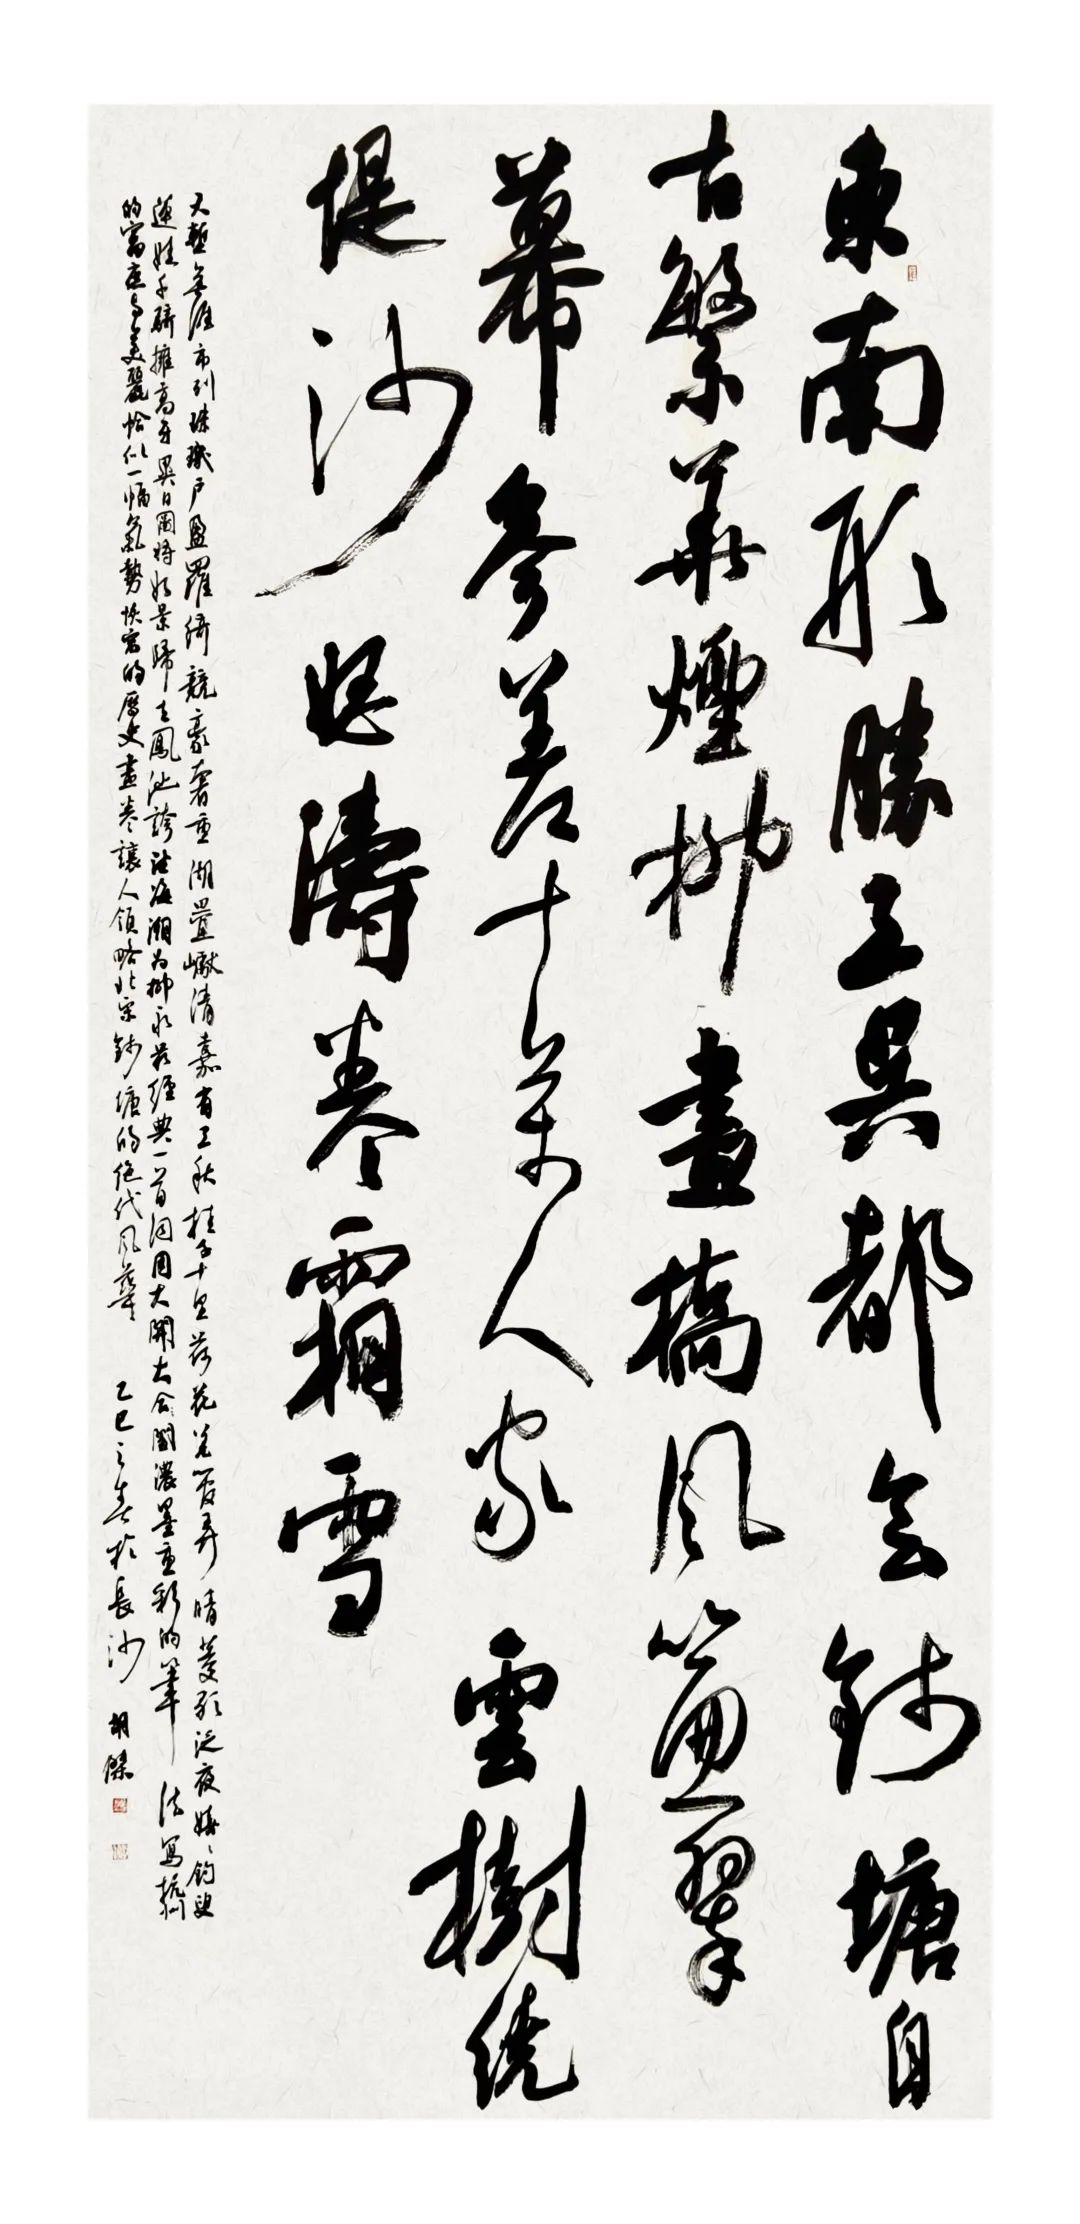 東南形勝三吳都會錢塘自
古繁華煙柳畫橋風簾翠
幕參差十萬人家雲樹繞
堤沙怒濤卷霜雪
天塹無涯市列珠璣戶盈羅綺競豪奢重湖疊巘清嘉有三秋桂子十里荷花羌管弄晴菱歌泛夜嬉〻釣叟
蓮娃千騎擁高牙異日圖將好景歸去鳳池誇望海潮為柳永最經典一首詞用大開大合闊濃墨重彩的筆法寫杭州
的富庶與美麗恰似一幅氣勢恢宏的歷史畫卷讓人領略北宋錢塘的絕代風華 乙巳之春於長沙 胡傑